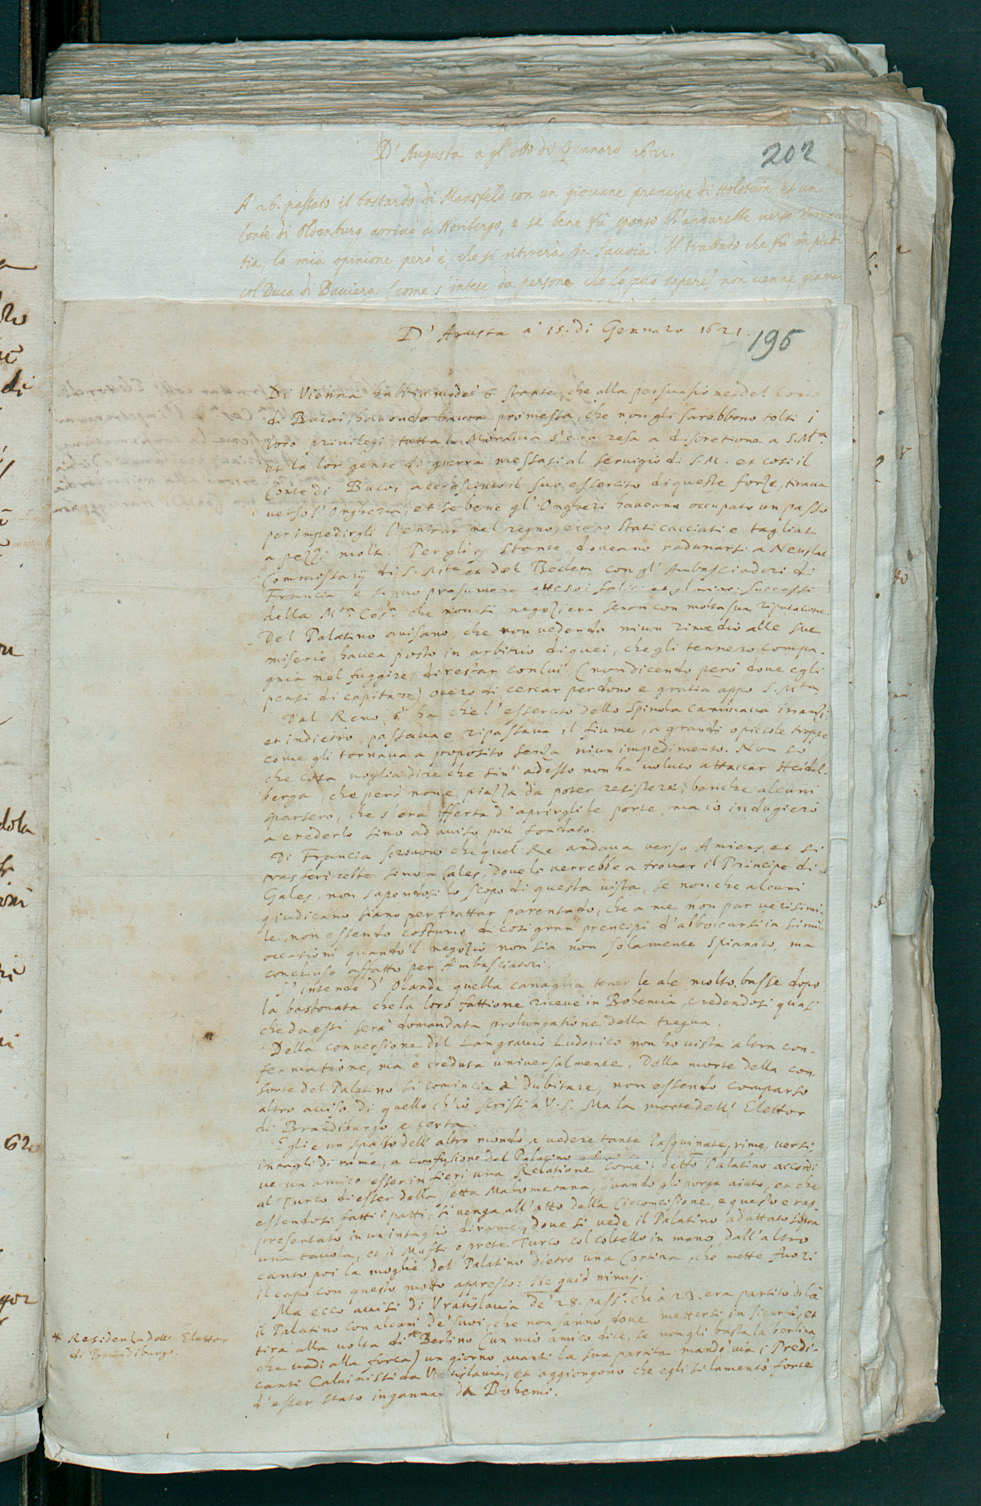 D'Augusta a gl'otto di Gennaro 1621.
202
A 26. passato il bastardo di Mansfeld con un giovane principe di Holstein et un
Conte di Oldenburg arrivò a Noriberga, e se bene fu sparso ch'andarebbe verso
tia, la mia opinione però è, che si ritirerà in Savoia. Il trattado che fu in piedi
col Duca di Baviera (come s'intese da persona che lo può sapere) non venne giamai
D'Augusta a' 15. di Gennaro 1621.
195
Di Vienna habbiamo de' 6 stante, che alla persuasione del Conte
di Bucoi, havendo havuta promessa, che non gli sarebbono tolti i
loro privilegi, tutta la Moravia s'era resa a discretione a S. Mta
et la lor gente di guerra messasi al servigio di S. M. et così il
Conte di Bucoi accresciuto il suo essercito di queste forze, tirava
verso l'Ongheria, et se bene gl'Ongheri haveano occupato un passo
per impedirgli l'entrar nel regno, erano stati cacciati e tagliati
a pezzi molti. Per gli stante doveano radunarsi a
Commissarij di S. Mta et del Betlem con gl'Ambasciadori di
Francia e si può presumere attesi i felici successi
della Mta Ces.a che non si negozierà senon con molta sua riputatione.
Del Palatino avisano, che non vedendo niun rimedio alle sue
miserie, havea posto in arbitrio di quei, che gli tennero compa-
gnia nel fuggire, di restar con lui (non dicendo però dove egli
pensi di capitare) overo di cercar perdono e gratia appo S. Mta
Dal Reno s'ha che l'essercito dello Spinola caminava innanzi
et indietro, passava e ripassava il fiume, a grandi o piccole troppe
come gli tornava a proposito senza niun impedimento. Non so
che cosa voglia dire che sin'adesso non ha voluto attaccar Heidel-
berga, che però non è piazza da poter resistere, benche alcuni
sparsero, che s'era offerta d'aprirgli le porte, ma io indugierò
a crederlo sino ad aviso più fondato.
Di Francia scrivono che quel Re andava verso Amiens, et si
trasferirebbe sino a Cales, dove lo verrebbe a trovar il Principe di
Gales, non sapendosi lo scopo di questa vista, se non che alcuni
giudicano siano per trattar parentado, che a me non par verisimi-
le, non essendo costume di così gran prencipi d'abboccarsi in simili
occasioni quando'l negozio non sia non solamente spianato, ma
concluso affatto per Ambasciatori.
S'intende d'Olanda quella canaglia tener le ale molto basse dopo
la bastonata che la loro fattione ricevé in Bohemia, credendosi quasi
che da essi serà domandata prolungatione della tregua.
Della conversione del Langravio Ludovico non ho vista altra con-
fermatione, ma è creduta universalmente. Della morte della con-
sorte del Palatino si comincia a dubitare, non essendo comparso
altro aviso di quello ch'io scrissi a V. S. Ma la morte dell'Elettor
di Brandiburgo è certa.
Egli è un spasso dell'altro mondo a vedere tante Pasquinate, rime, versi,
intagli di rame, a confusione del Palatino
ve un amico esser in fieri una Relatione come'l detto Palatino accordi
al Turco d'esser della setta Maometana, quando gli porga aiuto, et che
essendosi fatti i patti, si venga all'atto della Circoncisione, e questo è rap-
presentato in un intaglio di rame, dove si vede il Palatino adattato sopra
una tavola, et il Mufti o prete Turco col coltello in mano dall'altro
canto poi la moglie del Palatino dietro una Cortina, che mette fuori
il capo con questo motto appresso: Ne quid nimis.
Ma ecco avisi di Vratislavia de' 28. pass.o che a' 23. era partito di là
il Palatino con alcuni de' suoi, che non sanno dove mettersi in sicuro, et
tira alla volta di* Berlino (un mio amico dice, se non gli basta la berlina,
che vadi alla forca) un giorno avanti la sua partita mandò via i Predi-
canti Calvinisti da Vratislavia, et aggiongono che egli si lamentò forte
d'esser stato ingannato da Bohemi.
* Residenza dell'Elettor
di Brandiburgo.